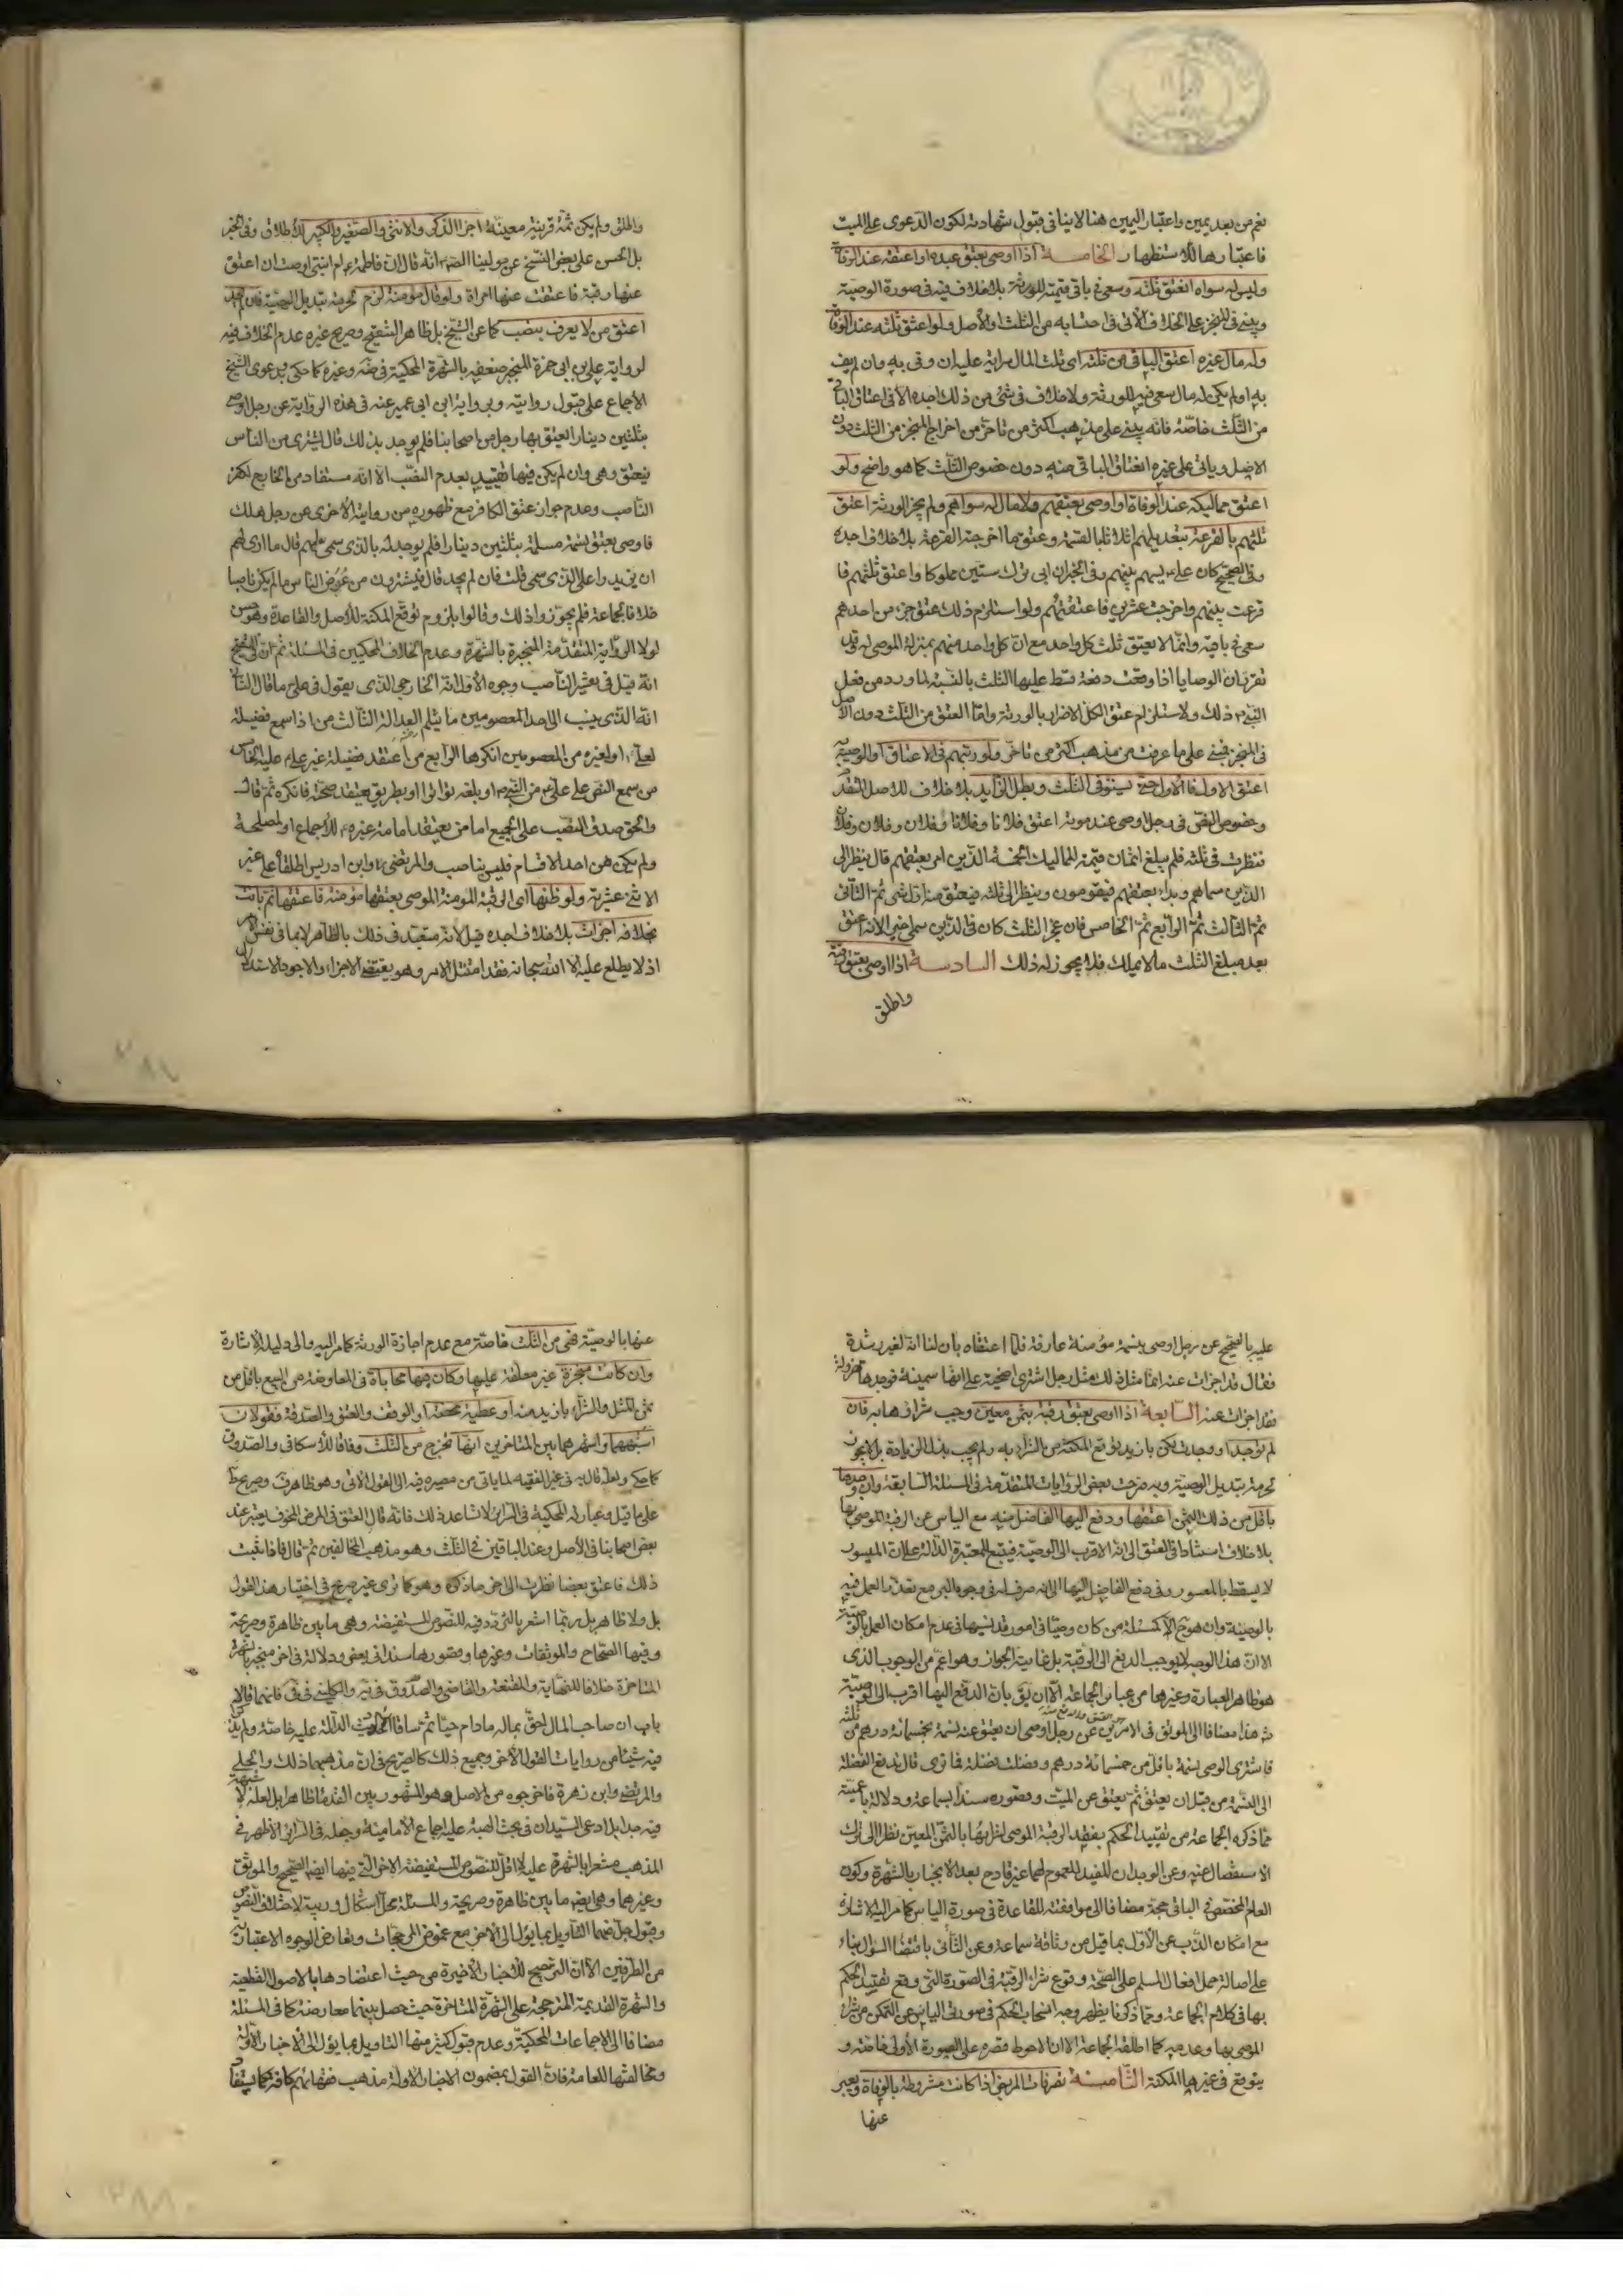 نعم من بعد يمين واعتبار اليمين هنا لا ينافى قبول شهادته لكون الدعوى على الميت
فاعتبارها للاستظهار الخامسة اذا اوصى بعتق عبده او اعتقه عند الوفاة
وليس له سواه انعتق ثلثه وسعى فى باقى قيمته للورثة بلا خلاف فيه فى صورة الوصية
ويبنى فى المنجز على الخلاف الآتى فى احتسابه من الثلث او الاصل ولو اعتق ثلثه عند الوفاة
وله مال غيره اعتق الباقى من ثلثه اى ثلث المال سراية عليه ان وفى به وان لم يف
به او لم يكن له مال سعى فيه للورثة ولا خلاف فى شئ من ذلك اجده الا فى اعتاق الباقى
من الثلث خاصة فانه يبنى على مذهب اكثر من تاخر من اخراج المنجز من الثلث دون
الاصل وياتى على غيره انعتاق الباقى منه دون خصوص الثلث كما هو واضح ولو
اعتق مماليكه عند الوفاة او اوصى بعتقهم ولا مال له سواهم ولم يجز الورثة اعتق
ثلثهم بالقرعة بتعديلهم اثلاثا بالقيمة وعتق ما اخرجته القرعة بلا خلاف اجده
وفى الصحيح كان على ع يسهم بينهم وفى الخبر ان ابى ترك ستين مملوكا واعتق ثلثهم فا
قرعت بينهم واخرجت عشرين فاعتقتهم ولو استلزم ذلك عتق جزء من احدهم
سعى فى باقيه وانما لا يعتق ثلث كل واحد مع ان كل واحد منهم بمنزلة الموصى له وقد
تقرر ان الوصايا اذا وقعت دفعة قسط عليها الثلث بالنسبة لما ورد من فعل
النبى ص ذلك ولاستلزام عتق الكل الاضرار بالورثة واما العتق من الثلث دون الاصل
فى المنجز فبنى على ما عرفت من مذهب اكثر من تاخر ولو رتبهم فى الاعتاق او الوصية
اعتق الاول فالاول حتى يستوفى الثلث وبطل الزايد بلا خلاف للاصل المتقدم
وخصوص النص فى رجل اوصى عند موته اعتق فلانا وفلانا وفلان وفلان وفلان
فنظرت فى ثلثه فلم يبلغ اثمان قيمة المماليك الخمسة الذين امر بعتقهم قال ينظر الى
الذين سماهم وبداء بعتقهم فيقومون وينظر الى ثلثه فيعتق منه اول شئ ثم الثانى
ثم الثالث ثم الرابع ثم الخامس فان عجز الثلث كان فى الذين سمى اخيرا لانه اعتق
بعد مبلغ الثلث ما لا يملك فلا يجوز له ذلك السادسة اذا اوصى بعتق رقبة
واطلق
واطلق ولم يكن ثمة قرينة معينة اجزا الذكر والانثى والصغير والكبير للاطلاق وفى الخبر
بل الحسن على بعض النسخ عن مولينا الصادق انه قال ان فاطمة ام ابنتى اوصت ان اعتق
عنها رقبة فاعتقت عنها امراة ولو قال مؤمنة لزم لحرمة تبديل الوصية فان لم يجد
اعتق من لا يعرف بنصب كما عن الشيخ بل ظاهر التنقيح وصريح غيره عدم الخلاف فيه
لرواية على بن ابى حمزة المنجبر ضعفه بالشهرة المحكية فى ضه وغيره كما حكى وبدعوى الشيخ
الاجماع على قبول روايته وبرواية ابن ابى عمير عنه فى هذه الرواية عن رجل اوصى
بثلثين دينارا لعتق بها رجل من اصحابنا فلم يوجد بذلك قال يشترى من الناس
فيعتق وهى وان لم يكن فيها تقييد بعدم النصب الا انه مستفاد من الخارج لكفر
الناصب وعدم جواز عتق الكافر مع ظهوره من روايته الاخرى عن رجل هلك
فاوصى بعتق نسمة مسلمة بثلثين دينارا فلم يوجد له بالذى سمى لهم قال ما ارى لهم
ان يزيدوا على الذى سمى قلت فان لم يجد قال فيشترون من عرض الناس ما لم يكن ناصبا
خلافا لجماعة فلم يجوزوا ذلك وقالوا بلزوم توقع المكنة للاصل والقاعدة وهو حسن
لولا الرواية المتقدمة المنجبرة بالشهرة وعدم الخلاف المحكيين فى المسئلة ثم ان فى التنقيح
انه قيل فى تفسير الناصب وجوه الاول انه الخارجى الذى يقول فى على ع ما قال الثانى
انه الذى ينسب الى احد المعصومين ما يثلم العدالة الثالث من اذا سمع فضيلة
لعلى ع او لغيره من المعصومين انكرها الرابع من اعتقد فضيلة غير على ع عليه الخامس
من سمع النص على على ع من النبى ص او بلغه تواترا او بطريق يعتقد صحته فانكره ثم قال
والحق صدق النصب على الجميع اما من يعتقد امامة غيره للاجماع او لمصلحة
ولم يكن من احد الاقسام فليس بناصب والمرتضى وابن ادريس اطلقاه على غير
الاثنى عشرية ولو ظنها اى الرقبة المومنة الموصى بعتقها مؤمنة فاعتقها ثم بانت
بخلافه اجزات بلا خلاف اجده قيل لانه متعبد فى ذلك بالظاهر لا بما فى نفس الامر
اذ لا يطلع عليه الا الله سبحانه فقد امتثل الامر وهو يقتضى الاجزاء والاجود الاستدلال
عليه بالصحيح عن رجل اوصى بنسمة مؤمنة عارفة فلما اعتقناه بان لنا انه لغير رشدة
فقال قد اجزات عنه انما مثل ذلك مثل رجل اشترى اضحية على انها سمينة فوجدها مهزولة
فقد اجزات عنه السابعة اذا اوصى بعتق رقبة بثمن معين وجب شراؤها به فان
لم توجد او وجدت لكن بازيد توقع المكنة من الشراء به ولم يجب بذل الزيادة بل لا يجوز
لحرمة تبديل الوصية وبه صرحت بعض الروايات المتقدمة فى المسئلة السابقة وان وجدها
باقل من ذلك الثمن اعتقها ودفع اليها الفاضل منه مع الياس عن الرقبة الموصى بها
بلا خلاف استنادا فى العتق الى انه الاقرب الى الوصية فيتبع للمعتبرة الدالة على ان الميسور
لا يسقط بالمعسور وفى دفع الفاضل اليها الى انه صرف له فى وجوه البر مع تعذر العمل فيه
بالوصية وان هو ح الا كمسئلة من كان وصيا فى امور قد نسيها فى عدم امكان العمل بالوصية
الا ان هذا الوجه لا يوجب الدفع الى الرقبة بل غايته الجواز وهو اعم من الوجوب الذى
هو ظاهر العبارة وغيرها من عبائر الجماعة الا ان يق بان الدفع اليها اقرب الى الوصية
هذا مضافا الى الموثق فى الامرين عن رجل اوصى ان يعتق عنه نسمة بخمسمائة درهم من ثلثه
فاشترى الوصى نسمة باقل من خمسمائة درهم وفضلت فضلة فما ترى قال تدفع الفضلة
الى النسمة من قبل ان يعتق ثم يعتق عن الميت وقصوره سندا بسماعة ودلالة باعمية
مما ذكره الجماعة من تقييد الحكم بفقد الرقبة الموصى لشرائها بالثمن المعين نظرا الى ترك
الاستفصال عنه وعن الوجدان المفيد للعموم لهما غير قادح بعد الانجبار بالشهرة وكون
العام المخصص فى الباقى حجة مضافا الى موافقته للقاعدة فى صورة الياس كما مر اليه الاشارة
مع امكان الذب عن الاول بما قيل من وثاقة سماعة وعن الثانى باقتضاء السؤال بناء
على اصالة حمل افعال المسلم على الصحة وقوع شراء الرقبة فى الصورة التى وقع تقييد الحكم
بها فى كلام الجماعة ومما ذكرنا يظهر وجه انسحاب الحكم فى صورتى الياس عن التمكن من شراء
الموصى بها وعدمه كما اطلقه الجماعة الا ان الاحوط قصره على الصورة الاولى خاصة و
يتوقع فى غيرها المكنة الثامنة تصرفات المريض اذا كانت مشروطة بالوفاة ويعبر
عنها
عنها بالوصية فهى من الثلث خاصة مع عدم اجازة الورثة كما مر اليه والى دليله الاشارة
وان كانت منجزة غير معلقة عليها وكان فيها محاباة فى المعاوضة من البيع باقل من
ثمن المثل والشراء بازيد منه او عطية محضة او الوقف والعتق والصدقة فقولان
اشبههما واشهرهما بين المتاخرين انها تخرج من الثلث وفاقا للاسكافى والصدوق
كما حكى ولعله قال به فى غير الفقيه لما ياتى من مصيره فيه الى القول الآتى وهو ظاهر ف وصريح ط
على ما قيل وعبارته المحكية فى السرائر لا تساعد ذلك فانه قال العتق فى المرض المخوف يعتبر عند
بعض اصحابنا فى الاصل وعند الباقين فى الثلث وهو مذهب المخالفين ثم قال فاذا ثبت
ذلك فاعتق بعضا نظرت الى آخر ما ذكره وهو كما ترى غير صريح فى اختيار هذا القول
بل ولا ظاهر بل ربما اشعر بالتردد فيه للنصوص المستفيضة وهى ما بين ظاهرة وصريحة
وفيها الصحاح والموثقات وغيرها وقصورها سندا فى بعض ودلالة فى آخر منجبر بالشهرة
المتاخرة خلافا للنهاية والمقنعة والقاضى والصدوق فى يه والكلينى فى فى فانهما قالا
باب ان صاحب المال احق بماله ما دام حيا ثم ساقا الاحاديث الدالة عليه خاصة ولم يذكرا
فيه شيئا من روايات القول الآخر وجميع ذلك كالصريح فى ان مذهبهما ذلك والحلى
والمرتضى وابن زهرة فاخرجوه من الاصل وهو المشهور بين القدماء ظاهرا بل لعله لا شبهة
فيه جدا بل ادعى السيدان فى بحث الهبة عليه اجماع الامامية وجعله فى السرائر الاظهر فى
المذهب مشعرا بالشهرة عليه لا اقل للنصوص المستفيضة الاخر التى فيها ايضا الصحيح والموثق
وغيرهما وهى ايضا ما بين ظاهرة وصريحة والمسئلة محل اشكال وريبة لاختلاف النصوص
وقبول جل منها التاويل بما يؤل الى الآخر مع غموض المرجحات وتعارض الوجوه الاعتباريات
من الطرفين الا ان الترجيح للاخبار الاخيرة من حيث اعتضادها بالاصول القطعية
والشهرة القديمة المترجحة على الشهرة المتاخرة حيث حصل بينهما معارضة كما فى المسئلة
مضافا الى الاجماعات المحكية وعدم قبول كثير منها التاويل بما يؤل الى الاخبار الاولة
ومخالفتها للعامة فان القول بمضمون الاخبار الاولة مذهب فقهائهم كافة كما يستفاد